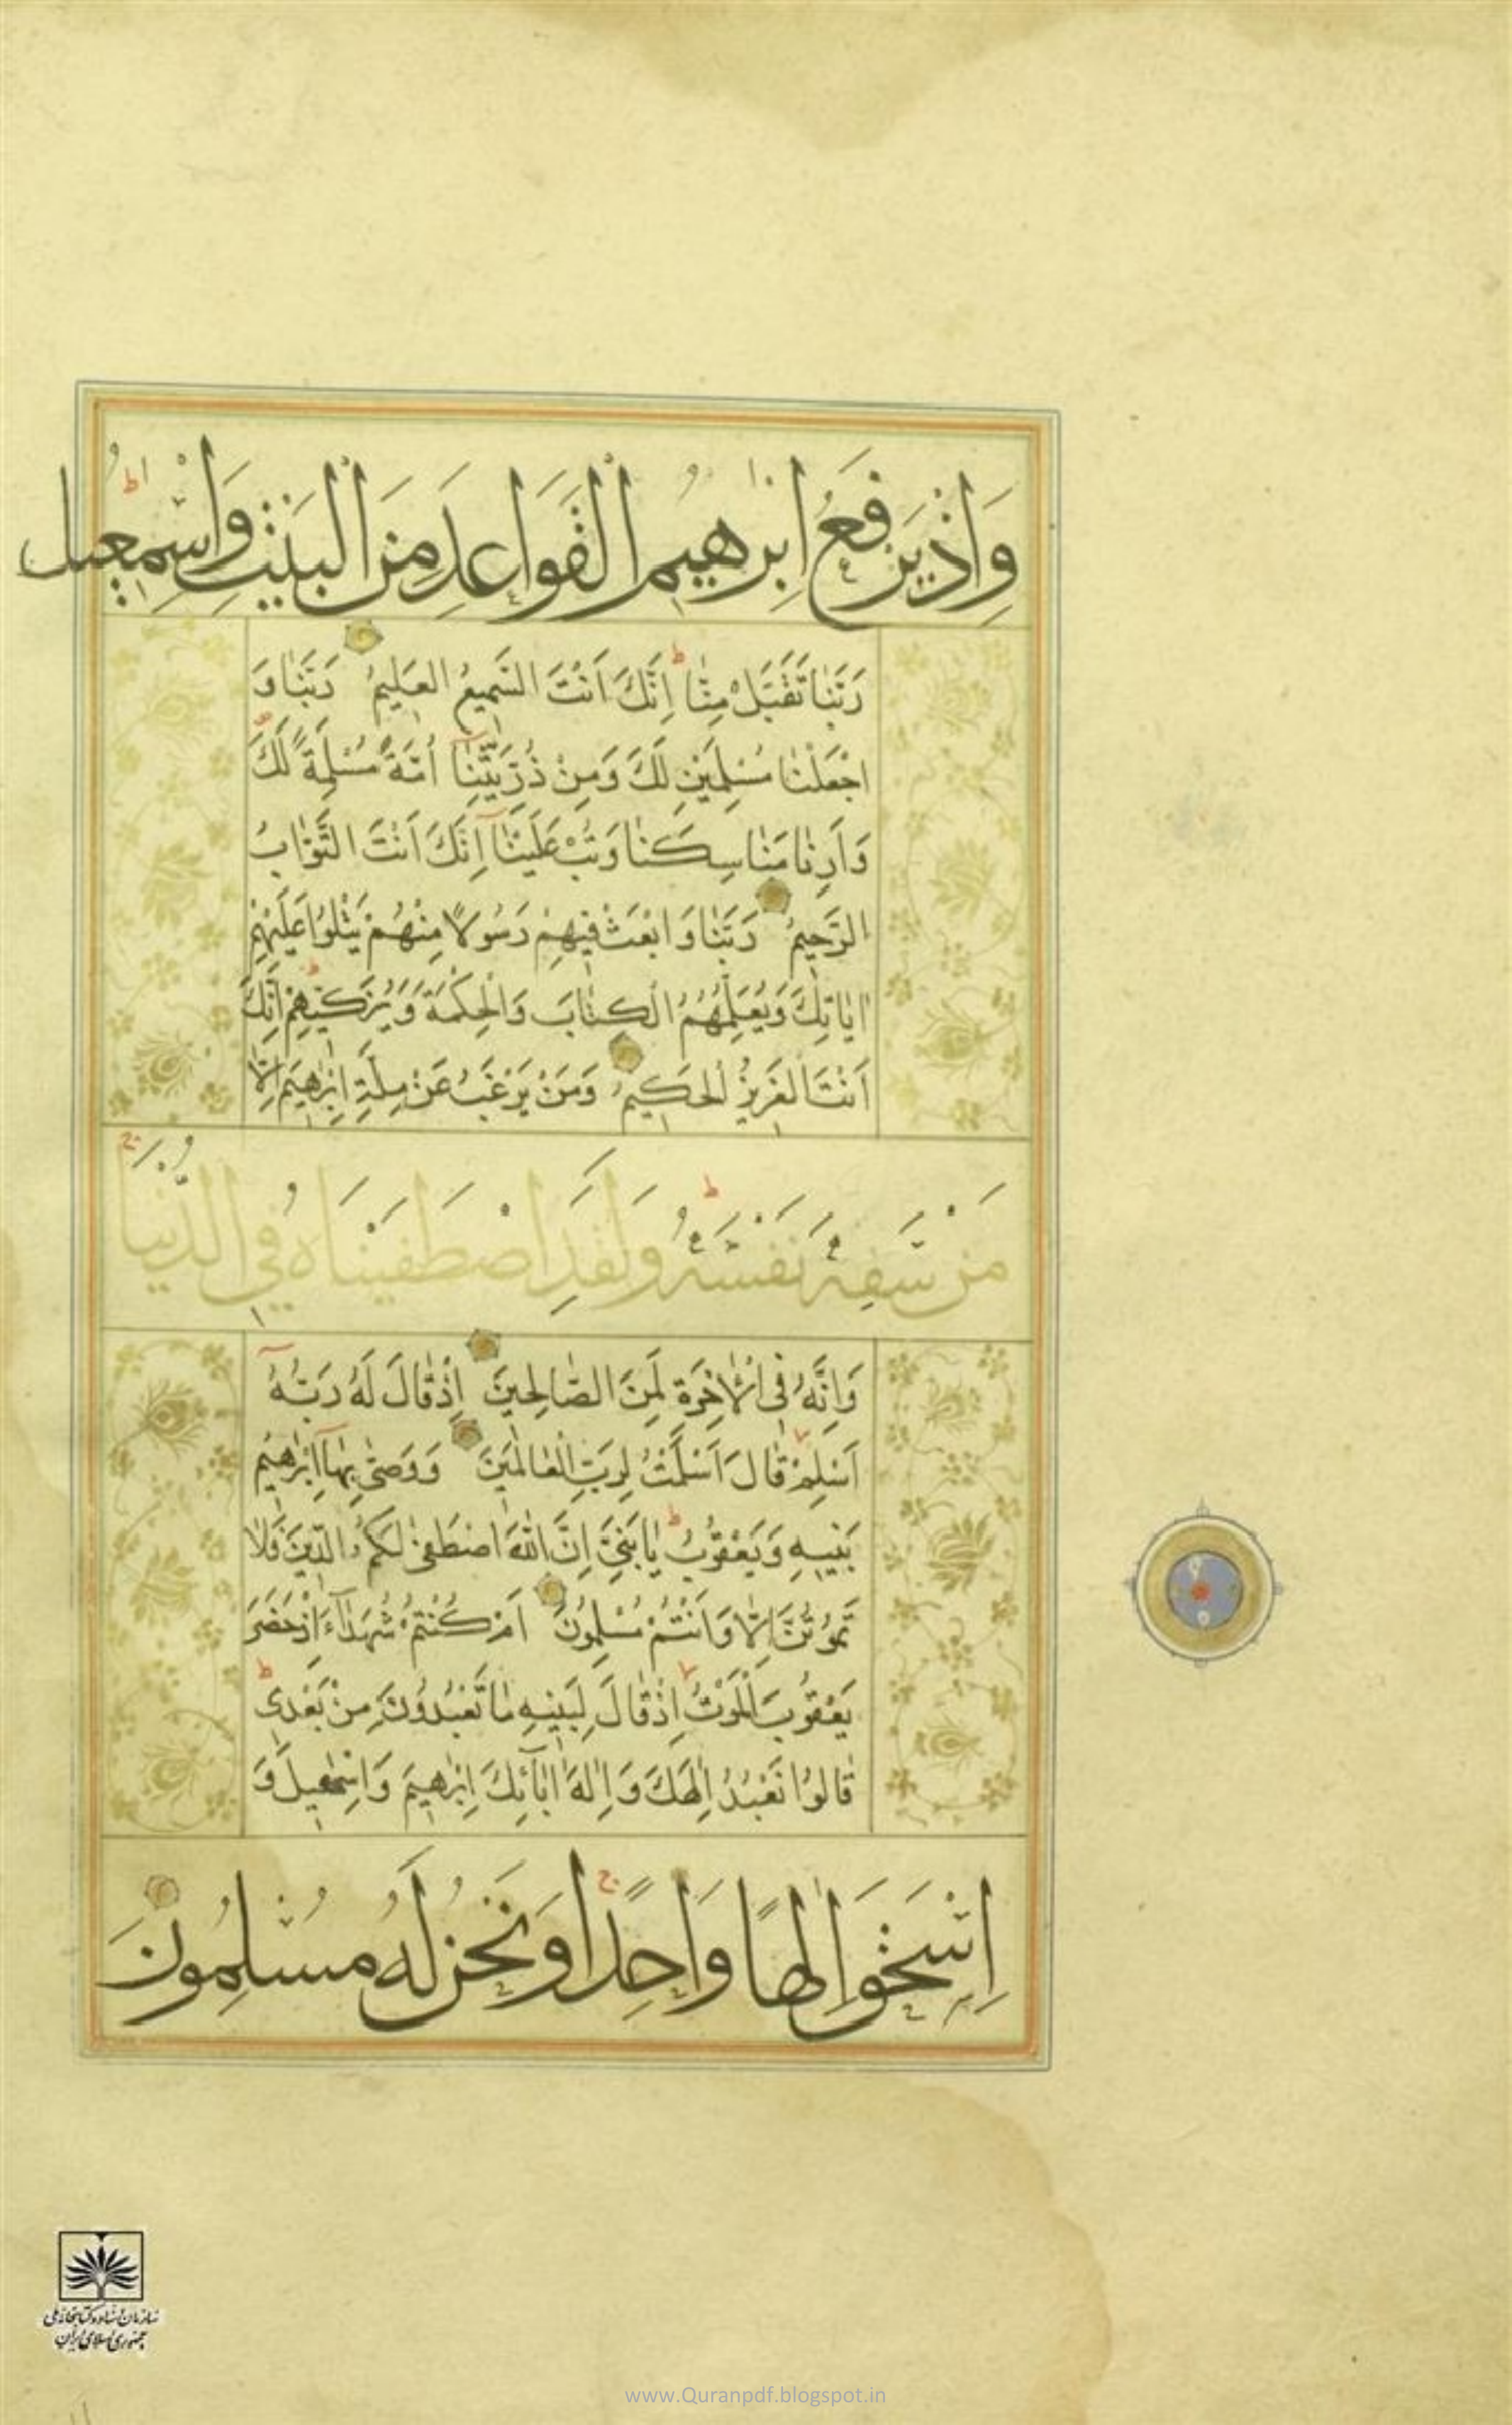 وَاِذْ يَرْفَعُ اِبْرٰهيمُ الْقَوَاعِدَ مِنَ الْبَيْتِ وَاِسْمٰعيلُ ط
رَبَّنٰا تَقَبَّلْ مِنّٰا ط اِنَّكَ اَنْتَ السَّميعُ الْعَليمُ رَبَّنٰا وَ
اجْعَلْنٰا مُسْلِمَيْنِ لَكَ وَمِنْ ذُرِّيَّتِنٰا اُمَّةً مُسْلِمَةً لَكَ
وَاَرِنٰا مَنٰاسِكَنٰا وَتُبْ عَلَيْنٰا اِنَّكَ اَنْتَ التَّوّٰابُ
الرَّحيمُ رَبَّنٰا وَابْعَثْ فيهِمْ رَسُولًا مِنْهُمْ يَتْلُوا عَلَيْهِمْ
اٰيٰاتِكَ وَيُعَلِّمُهُمُ الْكِتٰابَ وَالْحِكْمَةَ وَيُزَكّيهِمْ ط اِنَّكَ
اَنْتَ الْعَزيزُ الْحَكيمُ وَمَنْ يَرْغَبُ عَنْ مِلَّةِ اِبْرٰهيمَ اِلّٰا
مَنْ سَفِهَ نَفْسَهُ ط وَلَقَدِ اصْطَفَيْنَاهُ فِي الدُّنْيَا ج
وَاِنَّهُ فِى الْاٰخِرَةِ لَمِنَ الصّٰالِحينَ اِذْ قٰالَ لَهُ رَبُّهُ
اَسْلِمْ قٰالَ اَسْلَمْتُ لِرَبِّ الْعٰالَمينَ وَوَصّٰى بِهٰا اِبْرٰهيمُ
بَنيهِ وَيَعْقُوبُ ط يٰا بَنِيَّ اِنَّ اللّٰهَ اصْطَفٰى لَكُمُ الدّينَ فَلٰا
تَمُوتُنَّ اِلّٰا وَاَنْتُمْ مُسْلِمُونَ اَمْ كُنْتُمْ شُهَدٰاءَ اِذْ حَضَرَ
يَعْقُوبَ الْمَوْتُ اِذْ قٰالَ لِبَنيهِ مٰا تَعْبُدُونَ مِنْ بَعْدى ط
قٰالُوا نَعْبُدُ اِلٰهَكَ وَاِلٰهَ اٰبٰائِكَ اِبْرٰهيمَ وَاِسْمٰعيلَ وَ
اِسْحٰقَ اِلٰهًا وَاحِدًا ج وَنَحْنُ لَهُ مُسْلِمُونَ
سازمان اسناد و کتابخانه ملی
جمهوری اسلامی ایران
www.Quranpdf.blogspot.in